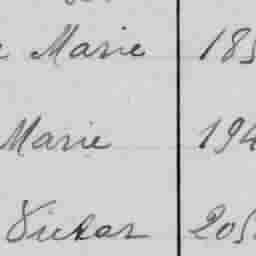 Marie 185
Marie 194
Victor 205